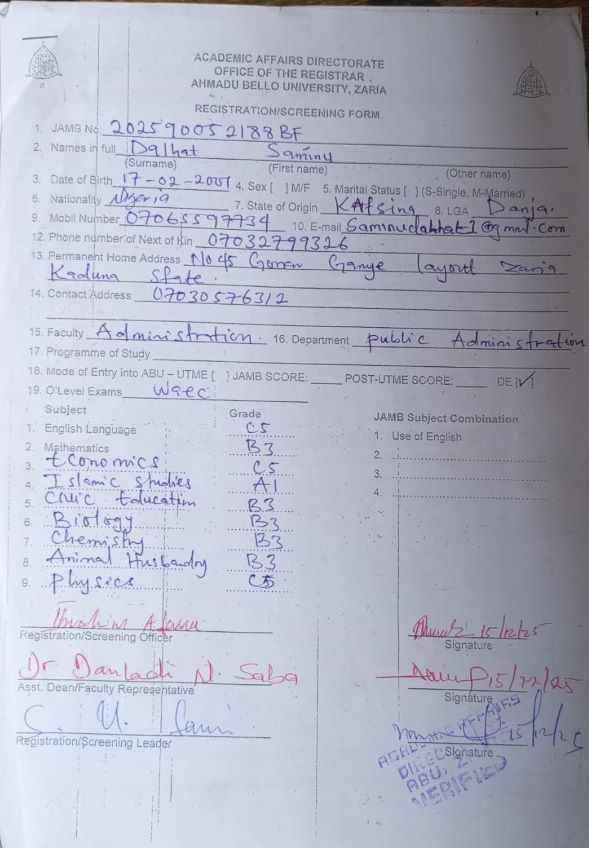 ACADEMIC AFFAIRS DIRECTORATE
OFFICE OF THE REGISTRAR
AHMADU BELLO UNIVERSITY, ZARIA
REGISTRATION/SCREENING FORM
1. JAMB No: 202590052188BF
2. Names in full Dalhat Saminu
(Surname) (First name) (Other name)
3. Date of Birth 17-02-2001 4. Sex [ ] M/F 5. Marital Status [ ] (S-Single, M-Married)
6. Nationality Nigeria 7. State of Origin KAtsina 8. LGA Danja.
9. Mobil Number 07065597734 10. E-mail Saminudalhat1@gmail.com
12. Phone number of Next of Kin 07032799326
13. Permanent Home Address No 45 Ganye layout zaria
Kaduna state.
14. Contact Address 07030576312
15. Faculty Administration. 16. Department public Administration
17. Programme of Study
18. Mode of Entry into ABU - UTME [ ] JAMB SCORE: POST-UTME SCORE: DE [✓]
19. O'Level Exams waec
Subject Grade JAMB Subject Combination
1. English Language C5 1. Use of English
2. Mathematics B3 2.
3. Economics C5 3.
4. Islamic studies A1 4.
5. Civic Education B3
6. Biology B3
7. Chemistry B3
8. Animal Husbandry B3
9. physics C5
Ibrahim 15/12/25
Registration/Screening Officer Signature
Dr Danladi N. Saba 15/12/25
Asst. Dean/Faculty Representative Signature
S. U. Sani 15/12/25
Registration/Screening Leader Signature
ACADEMIC AFFAIRS
DIRECTORATE
ABU, ZARIA
VERIFIED